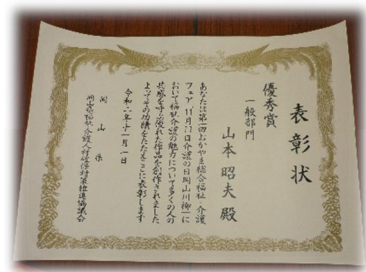 表彰状
優秀賞
一般部門
山本昭夫殿
あなたは第一回おかやま総合福祉・介護
フェア「11月11日介護の日岡山川柳」に
おいて福祉介護の魅力について多くの人の
共感を呼ぶ優れた作品を創作されました
よってその功績をたたえここに表彰します
令和六年十一月一日
岡山県
岡山県福祉・介護人材確保対策推進協議会